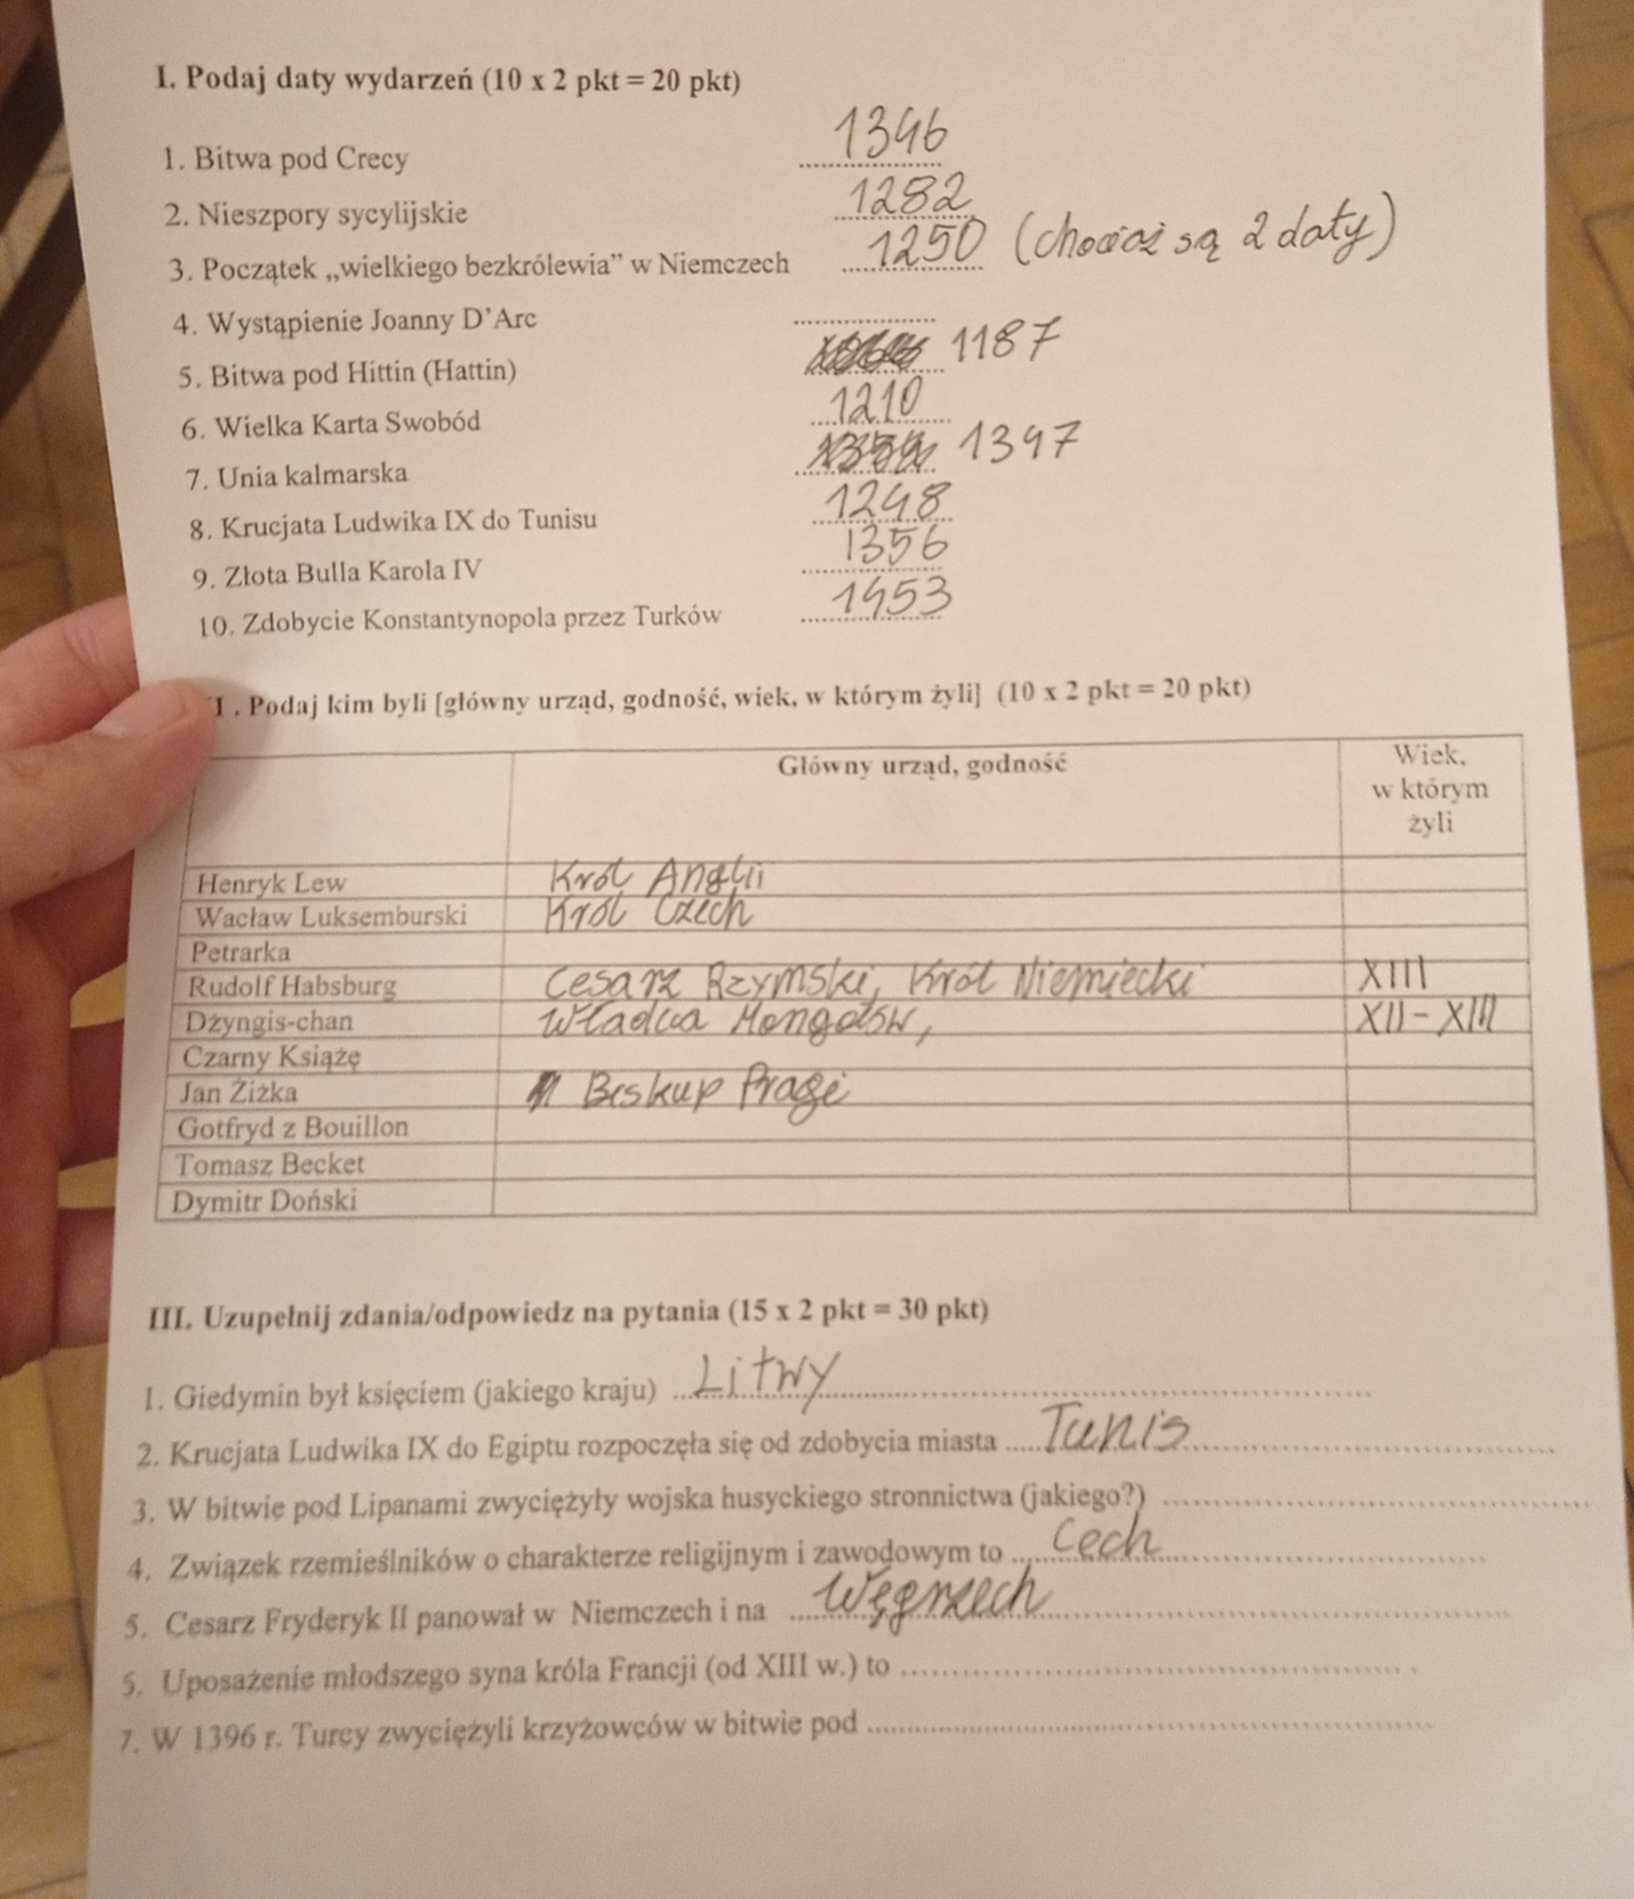 I. Podaj daty wydarzeń (10 x 2 pkt = 20 pkt)
1. Bitwa pod Crecy 1346
2. Nieszpory sycylijskie 1282
3. Początek „wielkiego bezkrólewia” w Niemczech 1250 (chociaż są 2 daty)
4. Wystąpienie Joanny D’Arc
5. Bitwa pod Hittin (Hattin) 1187
6. Wielka Karta Swobód 1210
7. Unia kalmarska 1397
8. Krucjata Ludwika IX do Tunisu 1248
9. Złota Bulla Karola IV 1356
10. Zdobycie Konstantynopola przez Turków 1453
I . Podaj kim byli [główny urząd, godność, wiek, w którym żyli] (10 x 2 pkt = 20 pkt)
Główny urząd, godność Wiek,
w którym
żyli
Henryk Lew Król Anglii
Wacław Luksemburski Król Czech
Petrarka
Rudolf Habsburg Cesarz Rzymski, Król Niemiecki XIII
Dżyngis-chan Władca Mongołów, XII-XIII
Czarny Książę
Jan Žižka Biskup Pragi
Gotfryd z Bouillon
Tomasz Becket
Dymitr Doński
III. Uzupełnij zdania/odpowiedz na pytania (15 x 2 pkt = 30 pkt)
1. Giedymin był księciem (jakiego kraju) Litwy
2. Krucjata Ludwika IX do Egiptu rozpoczęła się od zdobycia miasta Tunis
3. W bitwie pod Lipanami zwyciężyły wojska husyckiego stronnictwa (jakiego?)
4. Związek rzemieślników o charakterze religijnym i zawodowym to Cech
5. Cesarz Fryderyk II panował w Niemczech i na Węgrzech
6. Uposażenie młodszego syna króla Francji (od XIII w.) to
7. W 1396 r. Turcy zwyciężyli krzyżowców w bitwie pod